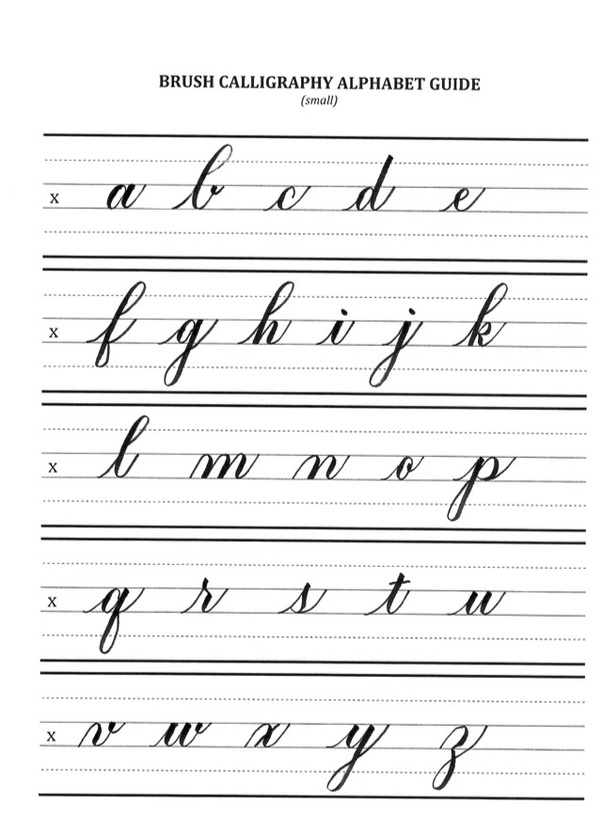 BRUSH CALLIGRAPHY ALPHABET GUIDE
(small)
x a b c d e
x f g h i j k
x l m n o p
x q r s t u
x v w x y z